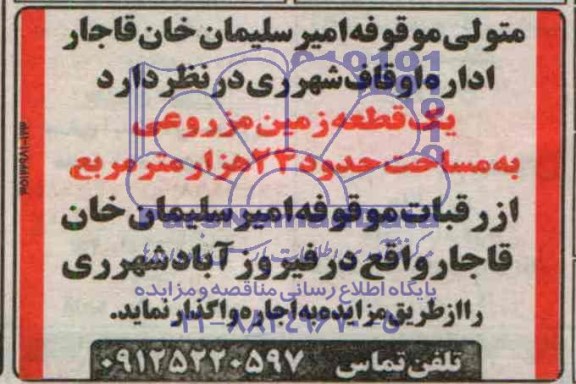 متولی موقوفه امیر سلیمان خان قاجار
اداره اوقاف شهرری در نظر دارد
یک قطعه زمین مزروعی
به مساحت حدود ۲۴ هزار متر مربع
از رقبات موقوفه امیر سلیمان خان
قاجار واقع در فیروز آباد شهرری
پایگاه اطلاع رسانی مناقصه و مزایده
را از طریق مزایده به اجاره واگذار نماید.
تلفن تماس ۰۹۱۲۵۲۲۰۵۹۷